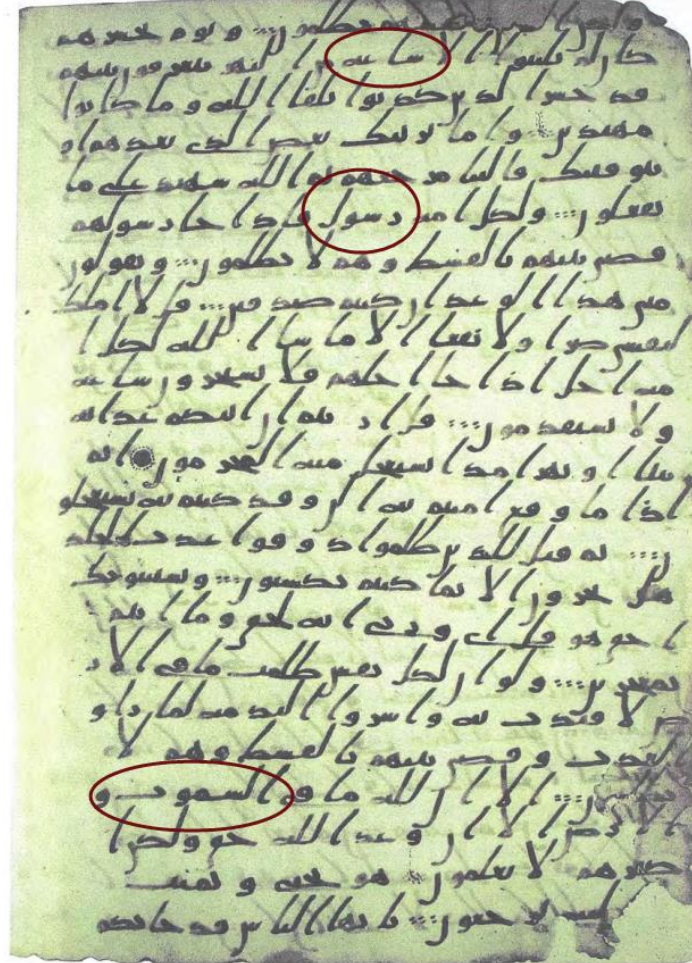 ولكن الناس انفسهم يظلمون ويوم يحشرهم
كان لم يلبثوا الا ساعة من النهر يتعرفون بينهم
قد خسر الذين كذبوا بلقا الله وما كانوا
مهتدين واما نرينك بعض الذي نعدهم او
نتوفينك فالينا مرجعهم ثم الله شهيد على ما
يفعلون ولكل امة رسول فاذا جا رسولهم
قضي بينهم بالقسط وهم لا يظلمون ويقولون
متى هذا الوعد ان كنتم صدقين قل لا املك
لنفسي ضرا ولا نفعا الا ما شا الله لكل ا
مة اجل اذا جا اجلهم فلا يستخرون ساعة
ولا يستقدمون قل اريتم ان اتيكم عذابه
بيتا او نهرا مذا يستعجل منه المجرمون اثم
اذا ما وقع امنتم به الن وقد كنتم به تستعجلو
ن ثم قيل للذين ظلموا ذوقوا عذب الخلد
هل تجزون الا بما كنتم تكسبون ويستنبونك
احق هو قل اي وربي انه لحق وما انتم
بمعجزين ولو ان لكل نفس ظلمت ما في الار
ض لافتدت به واسروا الندمة لما راو
ا العذب وقضي بينهم بالقسط وهم لا
يظلمون الا ان لله ما في السموت و
الارض الا ان وعد الله حق ولكن ا
كثرهم لا يعلمون هو يحيي ويميت
واليه ترجعون يايها الناس قد جاتكم